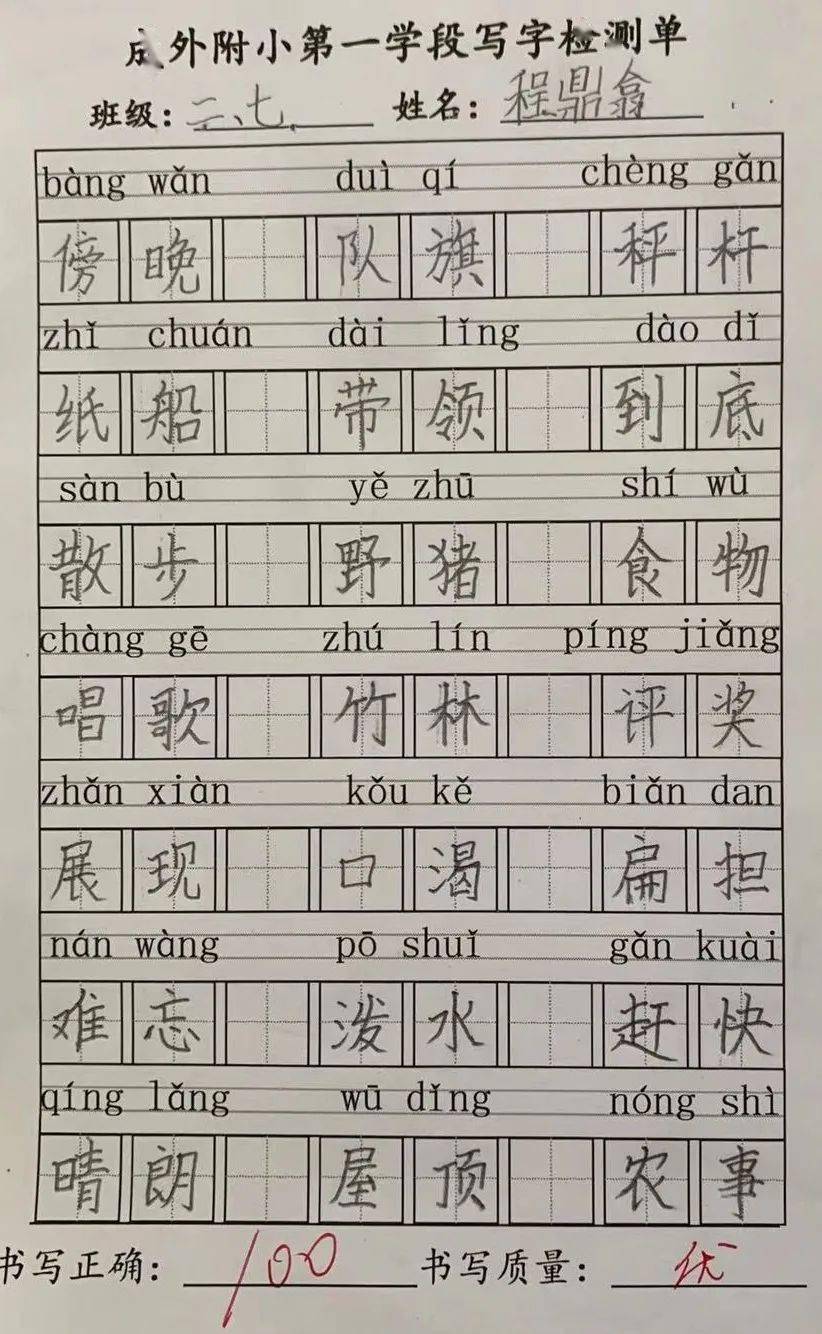 成外附小第一学段写字检测单
班级：二、七 姓名：程鼎翕
bàng wǎn duì qí chèng gǎn
傍晚 队旗 秤杆
zhǐ chuán dài lǐng dào dǐ
纸船 带领 到底
sàn bù yě zhū shí wù
散步 野猪 食物
chàng gē zhú lín píng jiǎng
唱歌 竹林 评奖
zhǎn xiàn kǒu kě biǎn dan
展现 口渴 扁担
nán wàng pō shuǐ gǎn kuài
难忘 泼水 赶快
qíng lǎng wū dǐng nóng shì
晴朗 屋顶 农事
书写正确：100 书写质量：优